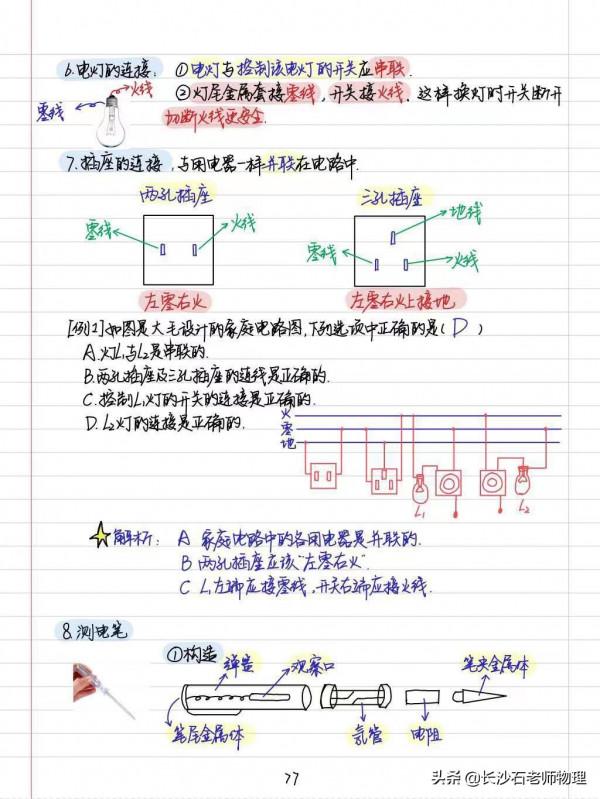 6.电灯的连接: ①电灯与控制该电灯的开关应串联.
②灯尾金属套接零线，开关接火线. 这样换灯时开关断开
切断火线更安全.
火线
零线
7.插座的连接，与用电器一样并联在电路中.
两孔插座 三孔插座
零线 火线
地线
零线 火线
左零右火 左零右火上接地
[例1]如图是大毛设计的家庭电路图，下列选项中正确的是(D)
A.灯L1与L2是串联的.
B.两孔插座及三孔插座的连线是正确的.
C.控制L1灯的开关的连接是正确的.
D.L2灯的连接是正确的.
火
零
地
L1 L2
解析: A 家庭电路中的各用电器是并联的.
B 两孔插座应该"左零右火".
C L1左端应接零线，开关右端应接火线.
8.测电笔
①构造
弹簧 观察口 笔尖金属体
笔尾金属体 氖管 电阻
77
头条 @长沙石老师物理